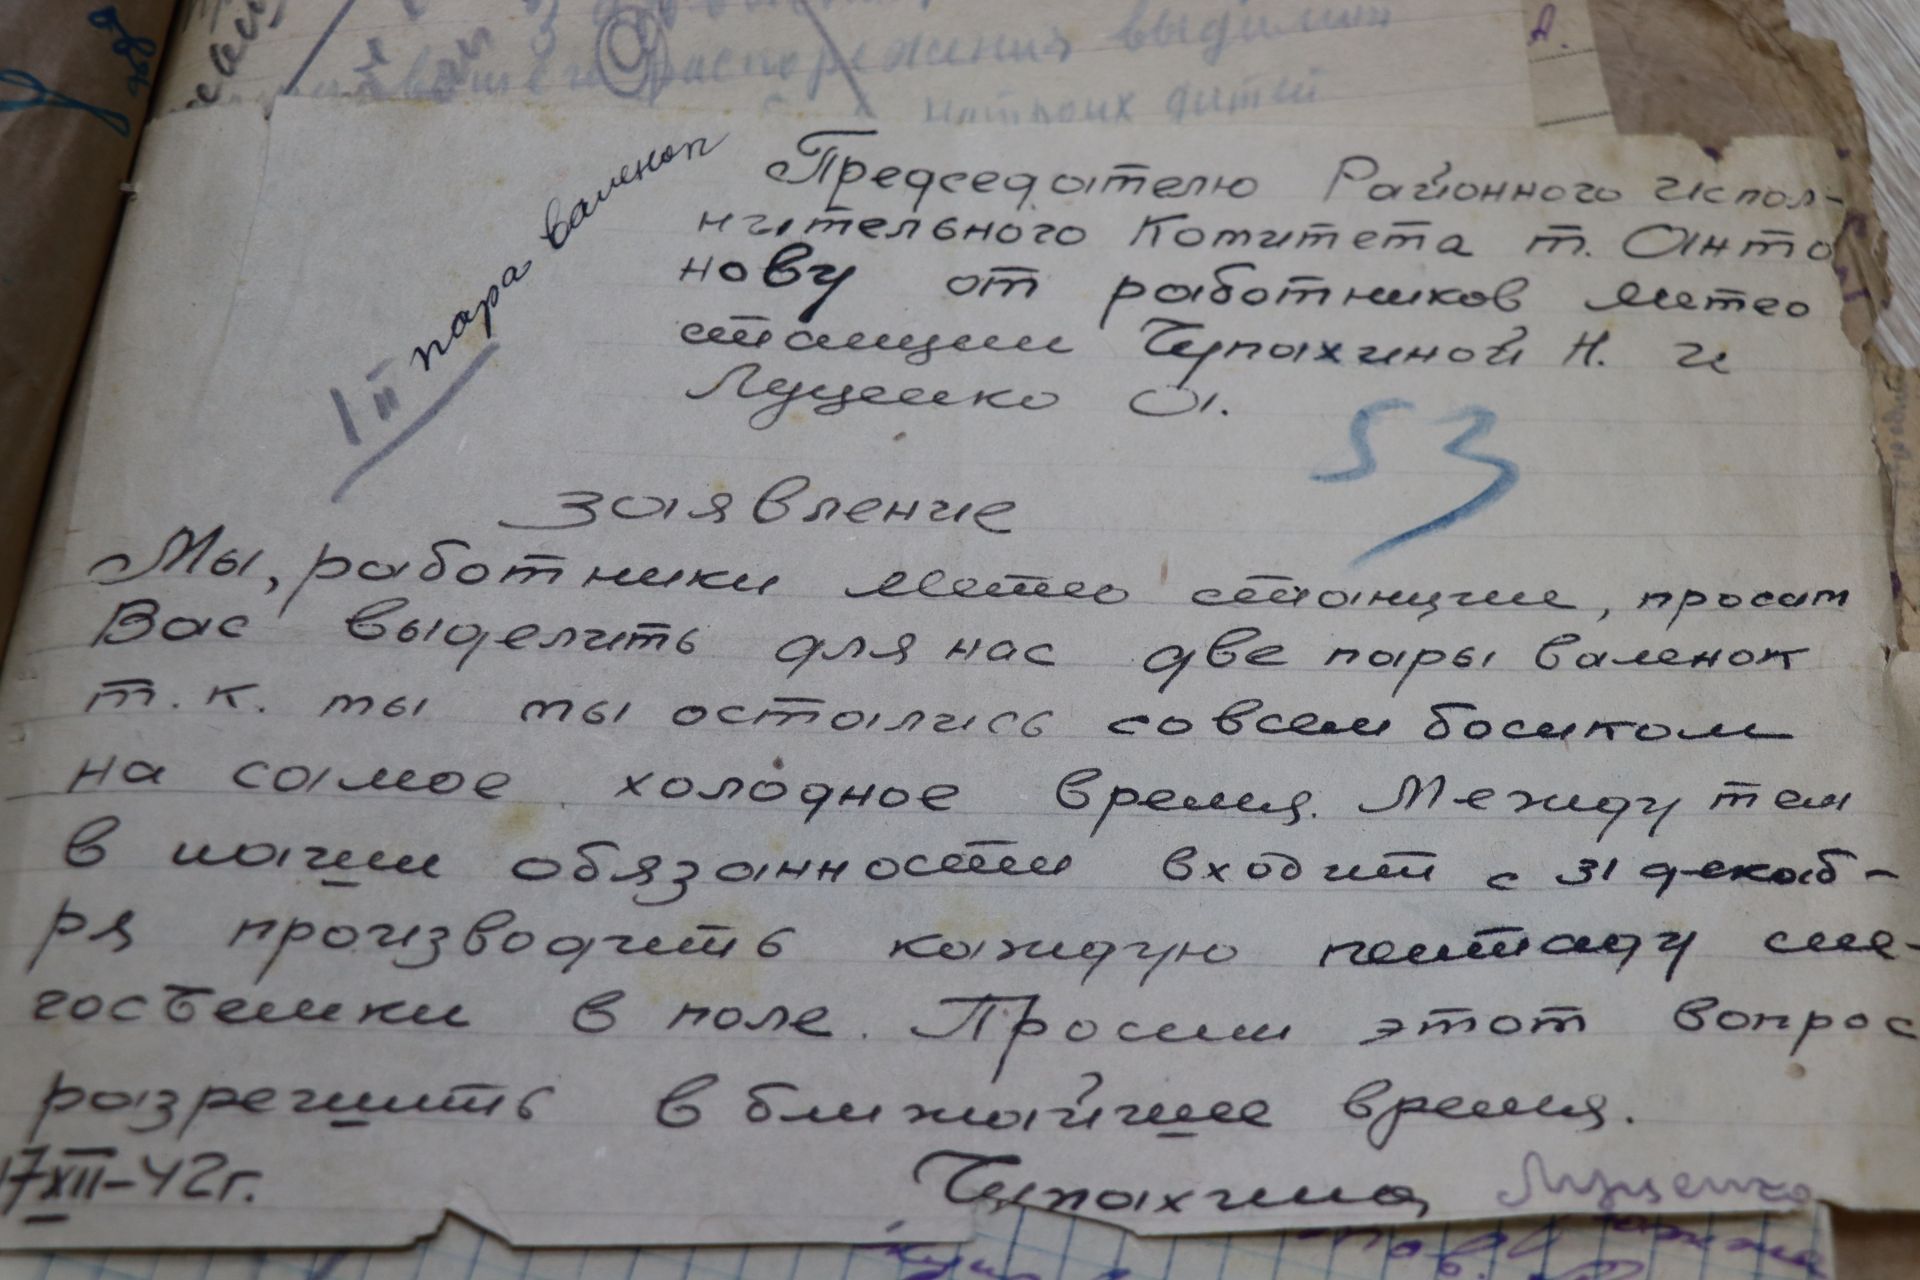 распоряжения выделит
на троих дитей
1 п
пара валенок
Председателю Районного испол-
нительного Комитета т. Анто
нову от работников метео
станции Чупахиной Н. и
Луценко О.
53
Заявление
Мы, работники метео станции, просит
Вас выделить для нас две пары валенок
т. к. мы мы остались совсем босиком
на самое холодное время. Между тем
в наши обязанности входит с 31 декаб-
ря производить каждую пентаду сне-
госъемки в поле. Просим этот вопрос
разрешить в ближайшее время.
17 XII-42г.
Чупахина Луценко